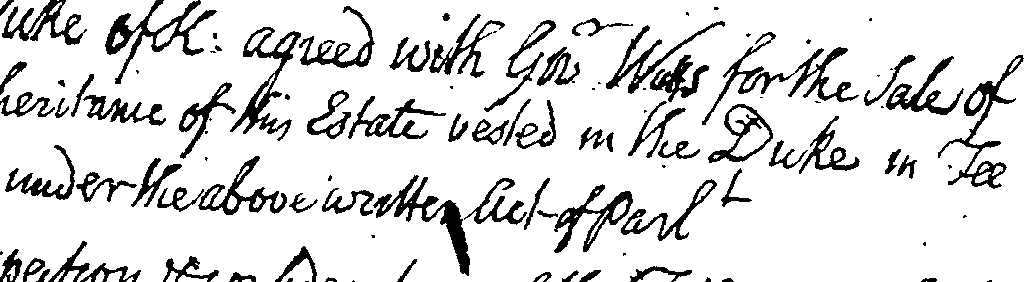 Duke of K: agreed with Govr Watts for the Sale of
heritance of this Estate vested in the Duke in Fee
under the above written Act of Parlt